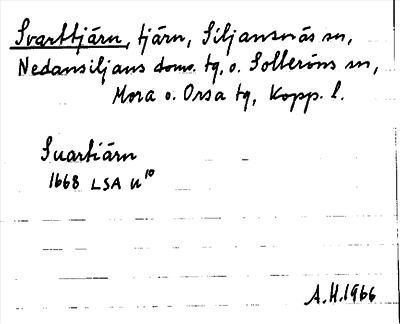 Svarttjärn, tjärn, Siljansnäs sn,
Nedansiljans doms. tg, o. Solleröns sn,
Mora o. Orsa tg, Kopp. l.
Suartiärn
1668 LSA U¹⁰
A.H.1966